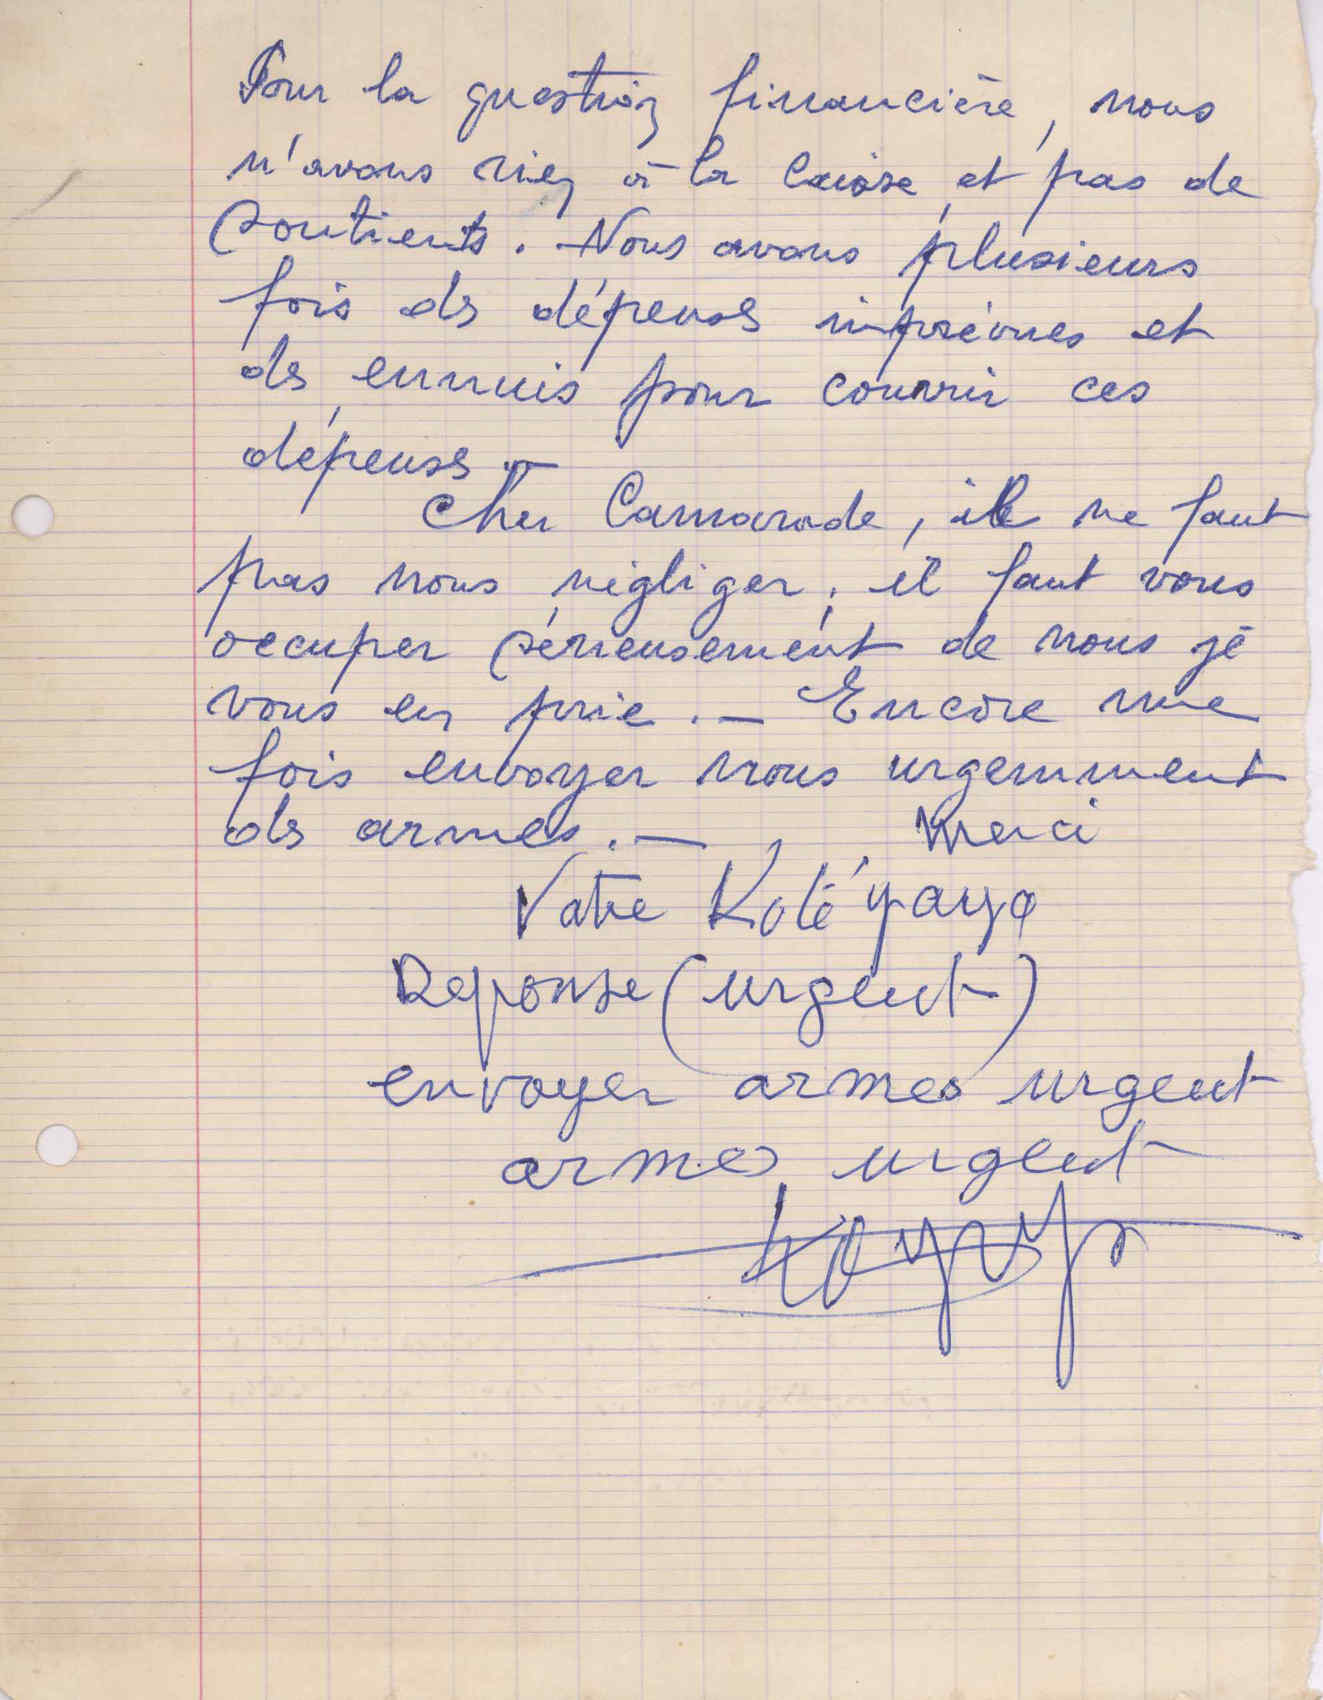 Pour la question financière, nous
n'avons rien à la Caisse et pas de
soutients. Nous avons plusieurs
fois ds dépenses imprévues et
ds ennuis pour couvrir ces
dépenses. —
Cher Camarade, il ne faut
pas nous négliger, il faut vous
occuper sérieusement de nous je
vous en prie. — Encore une
fois envoyer nous urgemment
ds armes. — Merci
Votre Kolé yayo
Reponse (urgent)
envoyer armes urgent
armes urgent